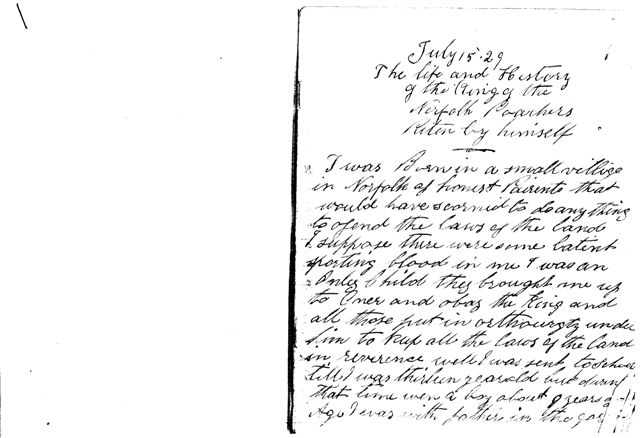 July 15·29
The life and History
of the King of the
Norfolk Poachers
Riten by himself
I was Born in a small villige
in Norfolk of honest Pairents that
would have scornid to do any thing
to ofend the laws of the land
I suppose there were some latent
sporting blood in me I was an
Only Child they brought me up
to Oner and obay the King and
all those put in orthouraty under
him to keep all the laws of the land
in reverence well I was sent to school
till I was thirteen years old but during
that time wen a boy about 9 years
Age I was with father in the